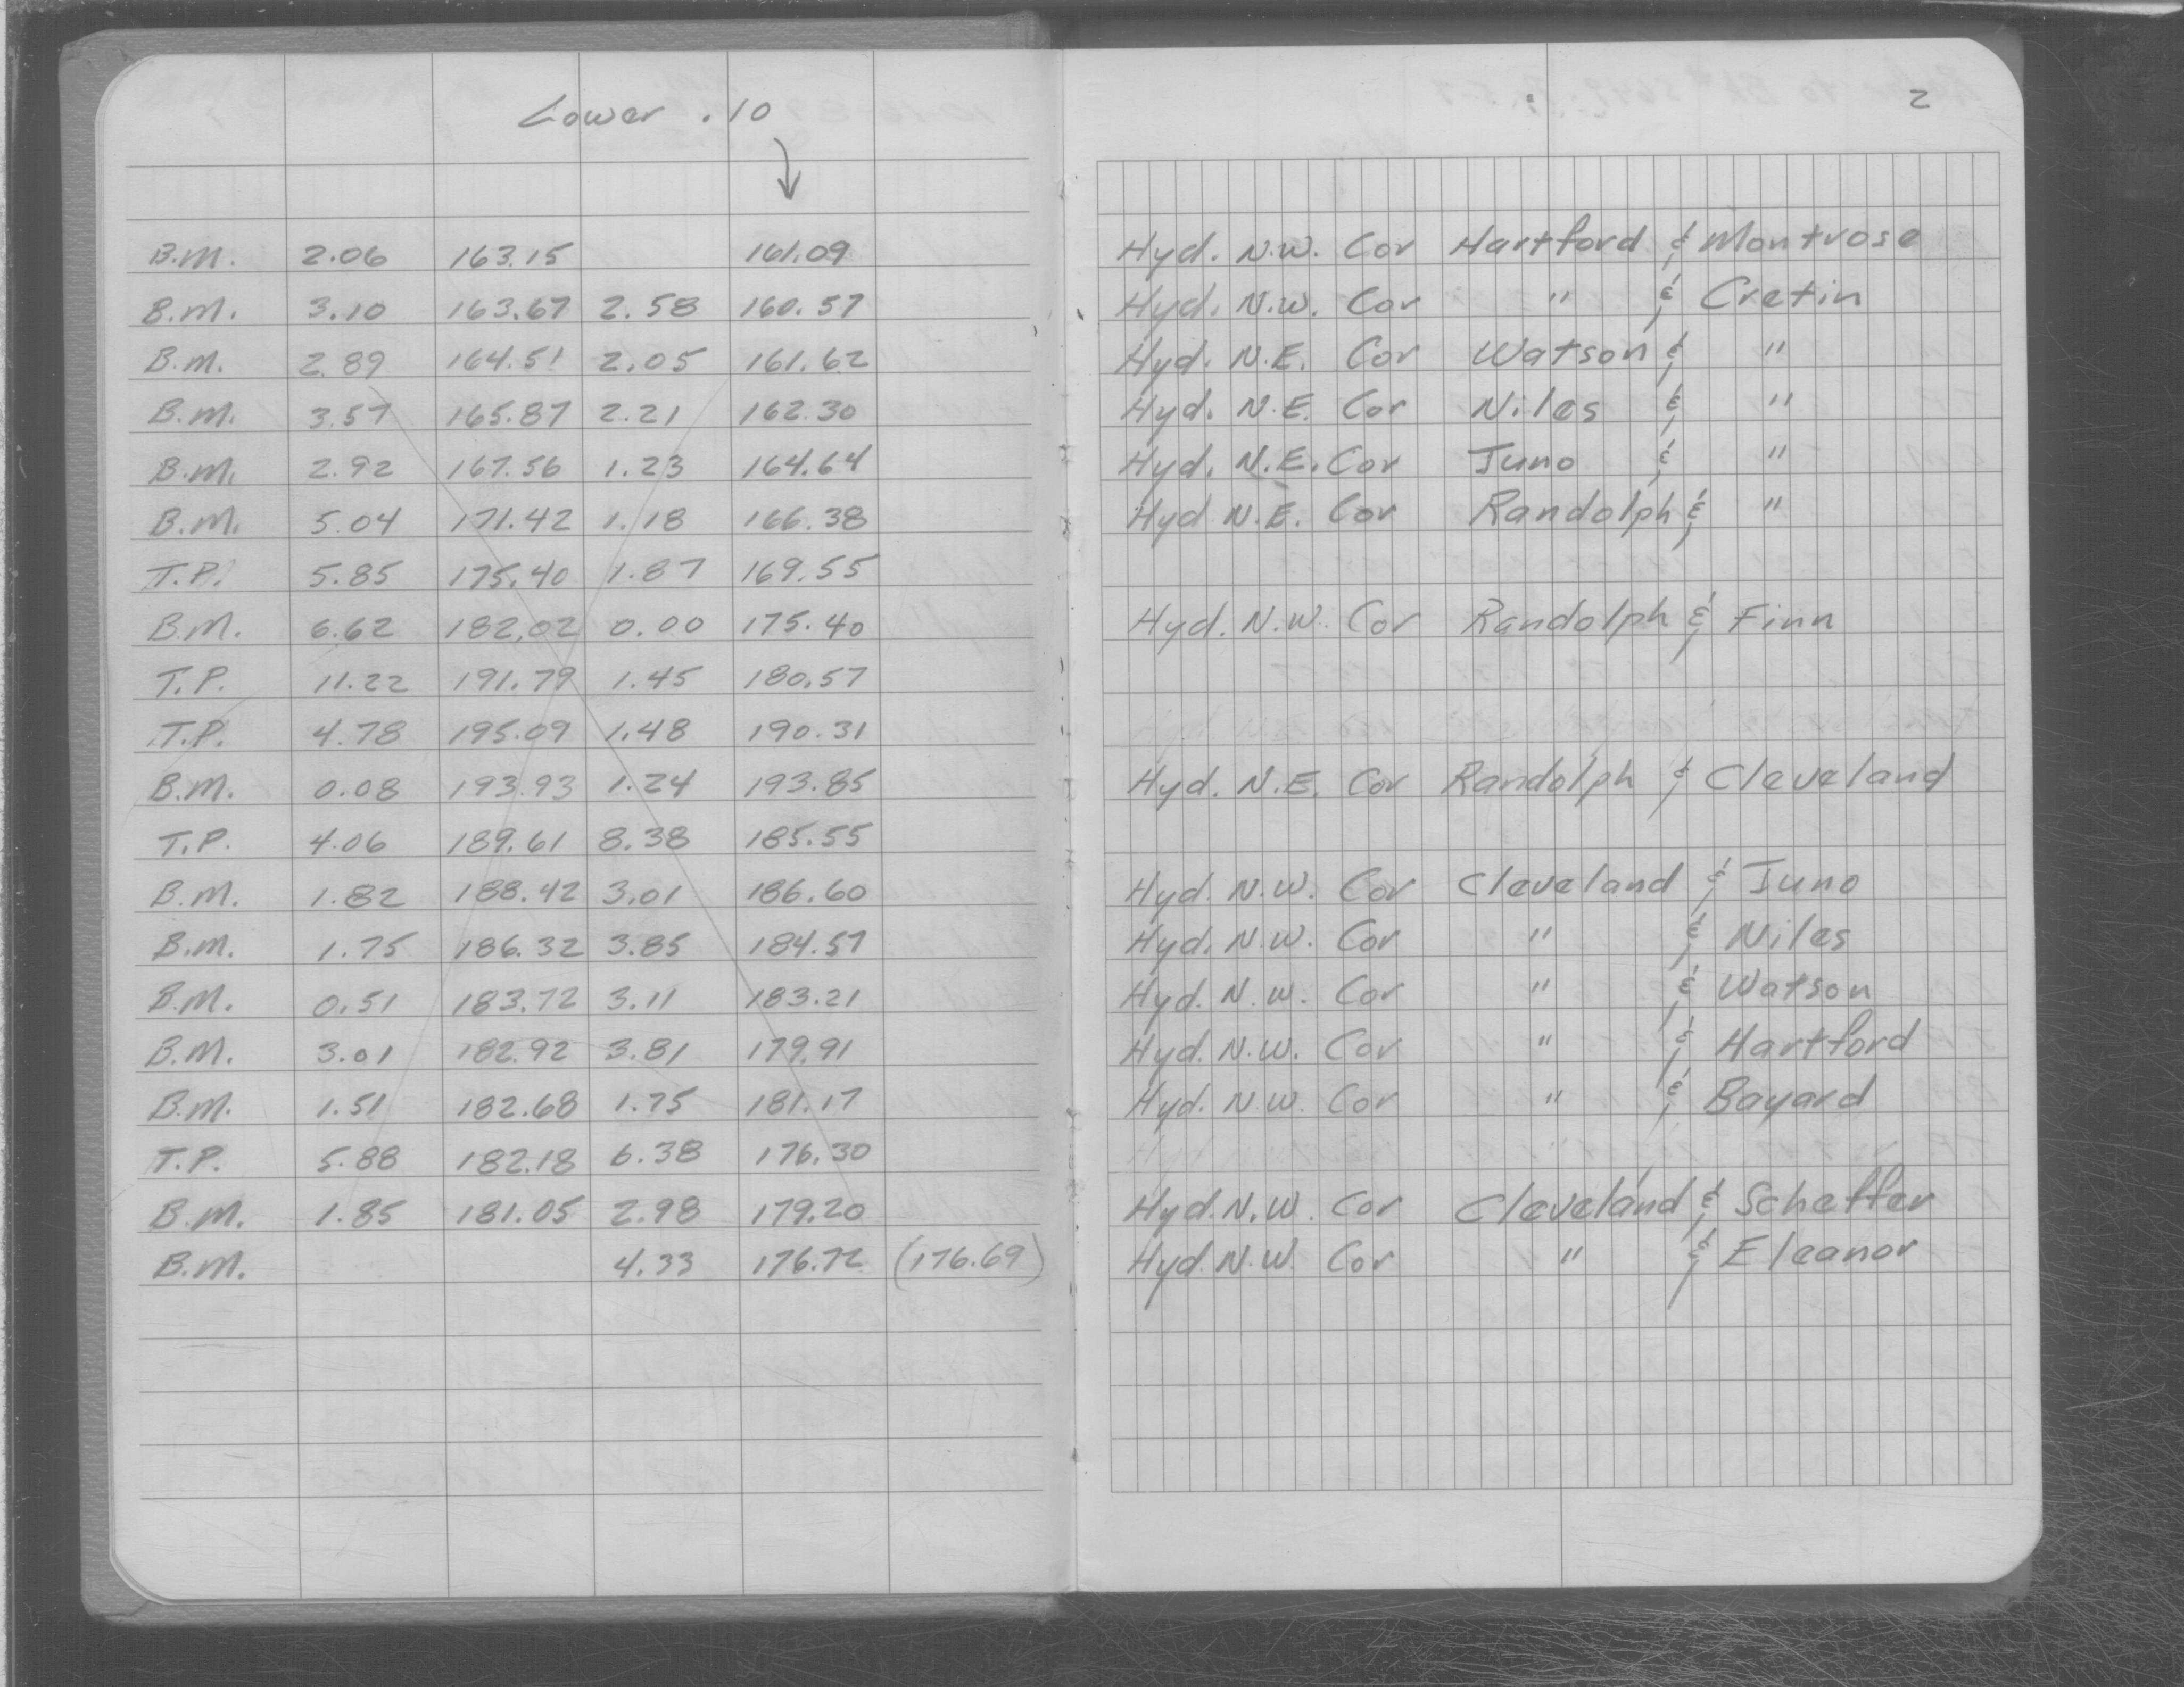 Lower .10
↓
B.M. 2.06 163.15 161.09
B.M. 3.10 163.67 2.58 160.57
B.M. 2.89 164.51 2.05 161.62
B.M. 3.57 165.87 2.21 162.30
B.M. 2.92 167.56 1.23 164.64
B.M. 5.04 171.42 1.18 166.38
T.P. 5.85 175.40 1.87 169.55
B.M. 6.62 182.02 0.00 175.40
T.P. 11.22 191.79 1.45 180.57
T.P. 4.78 195.09 1.48 190.31
B.M. 0.08 193.93 1.24 193.85
T.P. 4.06 189.61 8.38 185.55
B.M. 1.82 188.42 3.01 186.60
B.M. 1.75 186.32 3.85 184.57
B.M. 0.51 183.72 3.11 183.21
B.M. 3.01 182.92 3.81 179.91
B.M. 1.51 182.68 1.75 181.17
T.P. 5.88 182.18 6.38 176.30
B.M. 1.85 181.05 2.98 179.20
B.M. 4.33 176.72 (176.69)
2
Hyd. N.W. Cor Hartford & Montrose
Hyd. N.W. Cor " & Cretin
Hyd. N.E. Cor Watson & "
Hyd. N.E. Cor Niles & "
Hyd. N.E. Cor Juno & "
Hyd N.E. Cor Randolph & "
Hyd. N.W. Cor Randolph & Finn
Hyd. N.E. Cor Randolph & Cleveland
Hyd. N.W. Cor Cleveland & Juno
Hyd. N.W. Cor " & Niles
Hyd. N.W. Cor " & Watson
Hyd. N.W. Cor " & Hartford
Hyd. N.W. Cor " & Bayard
Hyd. N.W. Cor Cleveland & Scheffer
Hyd. N.W. Cor " & Eleanor